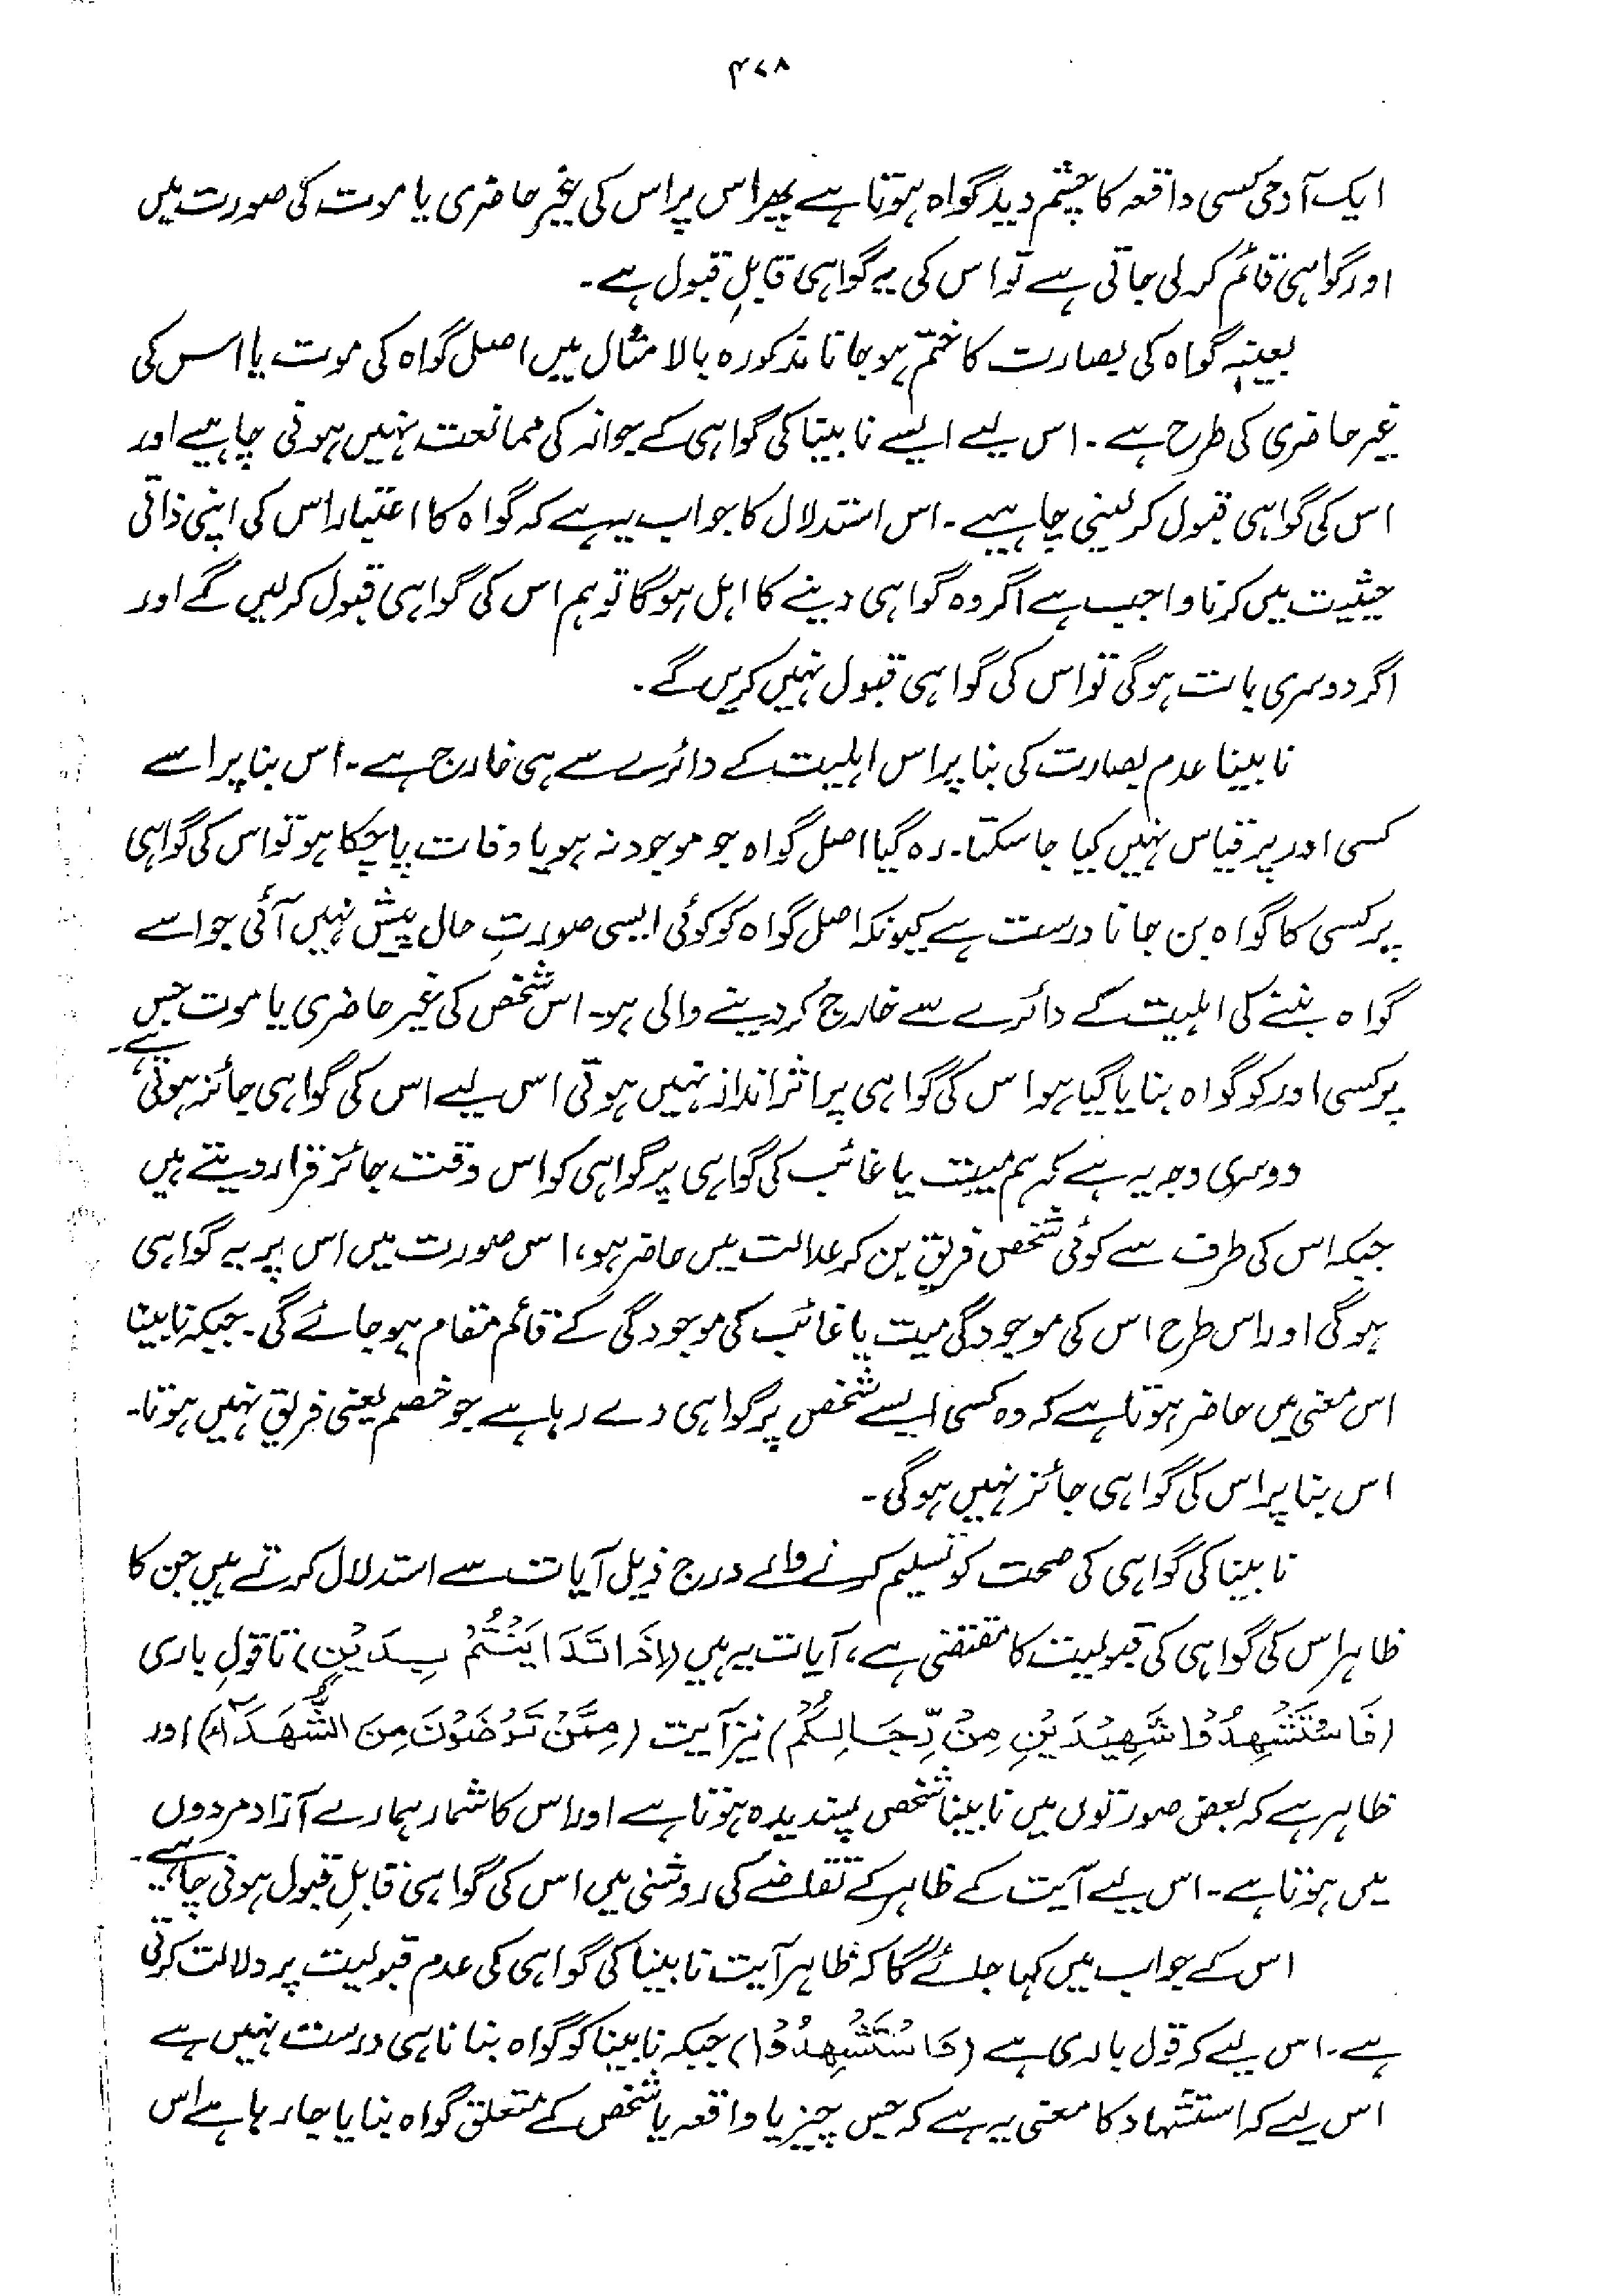 ۴۷۸
ایک آدمی کسی واقعہ کا چشم دید گواہ ہوتا ہے پھر اس پر اس کی غیر حاضری یا موت کی صورت میں
اور گواہی قائم کر لی جاتی ہے تو اس کی یہ گواہی قابلِ قبول ہے۔
بعینہٖ گواہ کی بصارت کا ختم ہو جانا مذکورہ بالا مثال میں اصل گواہ کی موت یا اس کی
غیر حاضری کی طرح ہے۔ اس لیے ایسے نابینا کی گواہی کے جواز کی ممانعت نہیں ہونی چاہیے اور
اس کی گواہی قبول کر لینی چاہیے۔ اس استدلال کا جواب یہ ہے کہ گواہ کا اعتبار اس کی اپنی ذاتی
حیثیت میں کرنا واجب ہے اگر وہ گواہی دینے کا اہل ہوگا تو ہم اس کی گواہی قبول کر لیں گے اور
اگر دوسری بات ہوگی تو اس کی گواہی قبول نہیں کریں گے۔
نابینا عدم بصارت کی بنا پر اس اہلیت کے دائرے سے ہی خارج ہے۔ اس بنا پر اسے
کسی اور پر قیاس نہیں کیا جا سکتا۔ رہ گیا اصل گواہ جو موجود نہ ہو یا وفات پا چکا ہو تو اس کی گواہی
پر کسی کا گواہ بن جانا درست ہے کیونکہ اصل گواہ کو کوئی ایسی صورتِ حال پیش نہیں آئی جو اسے
گواہ بننے کی اہلیت کے دائرے سے خارج کر دینے والی ہو۔ اس شخص کی غیر حاضری یا موت جس
پر کسی اور کو گواہ بنایا گیا ہو اس کی گواہی پر اثر انداز نہیں ہوتی اس لیے اس کی گواہی جائز ہوتی ہے۔
دوسری وجہ یہ ہے کہ ہم میت یا غائب کی گواہی پر گواہی کو اس وقت جائز قرار دیتے ہیں
جبکہ اس کی طرف سے کوئی شخص فریق بن کر عدالت میں حاضر ہو، اس صورت میں اس پر یہ گواہی
ہوگی اور اس طرح اس کی موجودگی میت یا غائب کی موجودگی کے قائم مقام ہو جائے گی۔ جبکہ نابینا
اس معنی میں حاضر ہوتا ہے کہ وہ کسی ایسے شخص پر گواہی دے رہا ہے جو خصم یعنی فریق نہیں ہوتا۔
اس بنا پر اس کی گواہی جائز نہیں ہوگی۔
نابینا کی گواہی کی صحت کو تسلیم کرنے والے درج ذیل آیات سے استدلال کرتے ہیں جن کا
ظاہر اس کی گواہی کی قبولیت کا مقتضی ہے، آیات یہ ہیں (اِذَا تَدَایَنْتُمْ بِدَیْنٍ) تا قولِ باری
(فَاسْتَشْهِدُوْا شَهِیْدَیْنِ مِنْ رِّجَالِکُمْ) نیز آیت (مِمَّنْ تَرْضَوْنَ مِنَ الشُّهَدَآءِ) اور
ظاہر ہے کہ بعض صورتوں میں نابینا شخص پسندیدہ ہوتا ہے اور اس کا شمار ہمارے آزاد مردوں
میں ہوتا ہے۔ اس لیے آیت کے ظاہر کے تقاضے کی روشنی میں اس کی گواہی قابلِ قبول ہونی چاہیے۔
اس کے جواب میں کہا جائے گا کہ ظاہر آیت نابینا کی گواہی کی عدم قبولیت پر دلالت کرتی
ہے۔ اس لیے کہ قول باری ہے (فَاسْتَشْهِدُوْا) جبکہ نابینا کو گواہ بنانا ہی درست نہیں ہے
اس لیے کہ استشہاد کا معنی یہ ہے کہ جس چیز یا واقعہ یا شخص کے متعلق گواہ بنایا جا رہا ہے اس